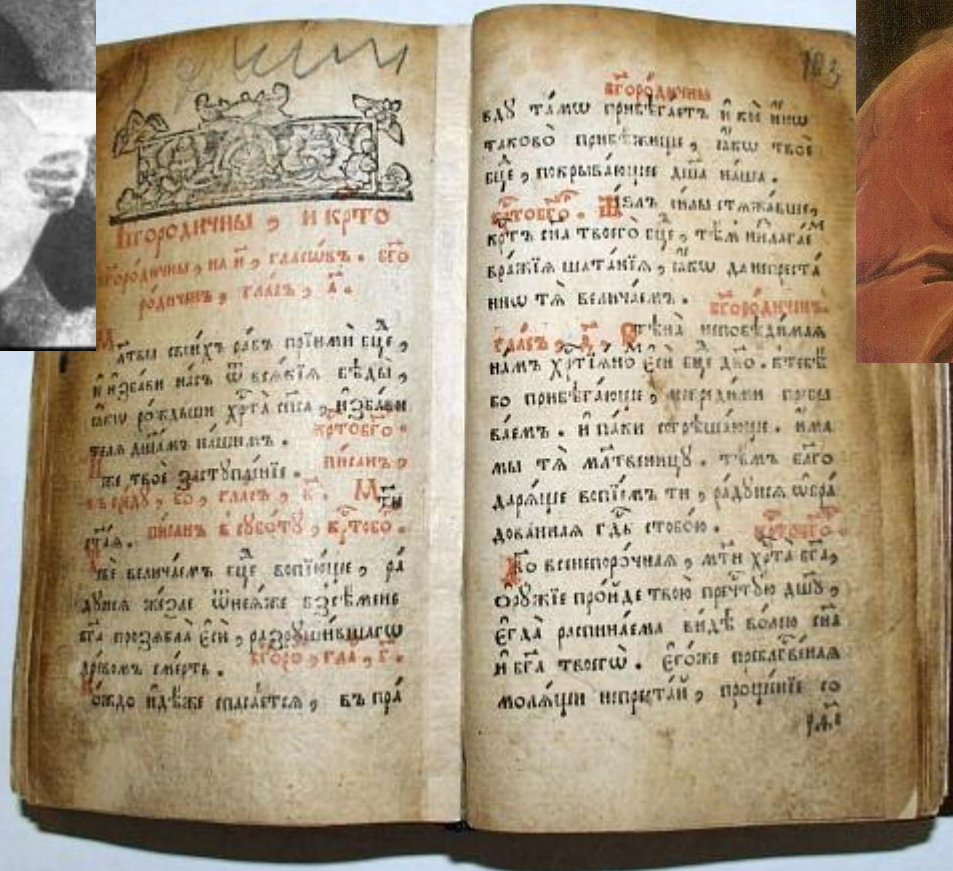 Бг҃ородичны , и кр҃то
бг҃ородичны , на и҃ , гласовъ . бг҃о
родиченъ , гласъ , а҃ .
Мл҃твы свои́хъ ра́бъ прїимѝ бц҃е ,
и҆ и҆зба́ви на́съ ѿ вся́кїѧ бѣды̀ ,
ꙗ҆́кѡ ро́ждьши хр҃та̀ сп҃са , и҆зба́ви
телѧ дш҃а́мъ на́шимъ . кр҃тобг҃о .
И҆́же твоѐ заступле́нїе . пи́санъ ,
въ сре́ду , во , гласъ , в҃ . Мт҃и
ст҃а́ѧ . пи́санъ в сꙋбо́тꙋ , кр҃тобо .
Тѣ́же велича́емъ бц҃е вопїю́ще , ра́
дꙋйсѧ же́зле ѿнеѧ́же безсѣ́мене
бг҃а прозѧбла̀ є҆сѝ , разрꙋши́вшаго
дре́вомъ сме́рть . бг҃оро , гла , г҃ .
Ко́ждо и҆дѣ́же спаса́етсѧ , въ пра́
103
бг҃ородичны
вдꙋ та́мѡ прибѣга́етъ и҆ ко́е и҆́нѡ
таково̀ прибѣ́жище , ꙗ҆́кѡ твоѐ
бц҃е , покрыва́ющее дш҃а на́ша .
кр҃тобг҃о . Же́злъ си́лы стѧжа́вше ,
кр҃тъ сн҃а твоего̀ бц҃е , тѣ́мъ низлага́ем
вра́жїѧ шата́нїѧ , ꙗ҆́кѡ да непреста́
ннѡ тѧ̀ велича́емъ . бг҃ородиченъ .
гласъ , д҃ . Стѣна̀ непобѣди́маѧ
на́мъ хр҃тїѧ́нѡ є҆сѝ бц҃е дв҃о . к тебѣ́
бо прибѣга́юще , невреди́ми пребы
ва́емъ . и҆ па́ки согрѣша́юще . и҆́ма
мы тѧ̀ мл҃твеницꙋ . тѣ́мъ бл҃го
дарѧ́ще вопїе́мъ ти , ра́дꙋйсѧ ѡ҆бра́
дованнаѧ гд҃ь с тобо́ю . кр҃тобг҃о .
Дв҃о всенепоро́чнаѧ , мт҃и хр҃та̀ бг҃а ,
ѻ҆рꙋ́жїе про́йде твою̀ пречт҃ꙋю дш҃ꙋ ,
є҆гда̀ распина́ема ви́дѣ во́лею сн҃а
и҆ бг҃а твоегѡ̀ . є҆го́же пребл҃гве́ннаѧ
молѧ́щи непреста́й , проще́нїе со